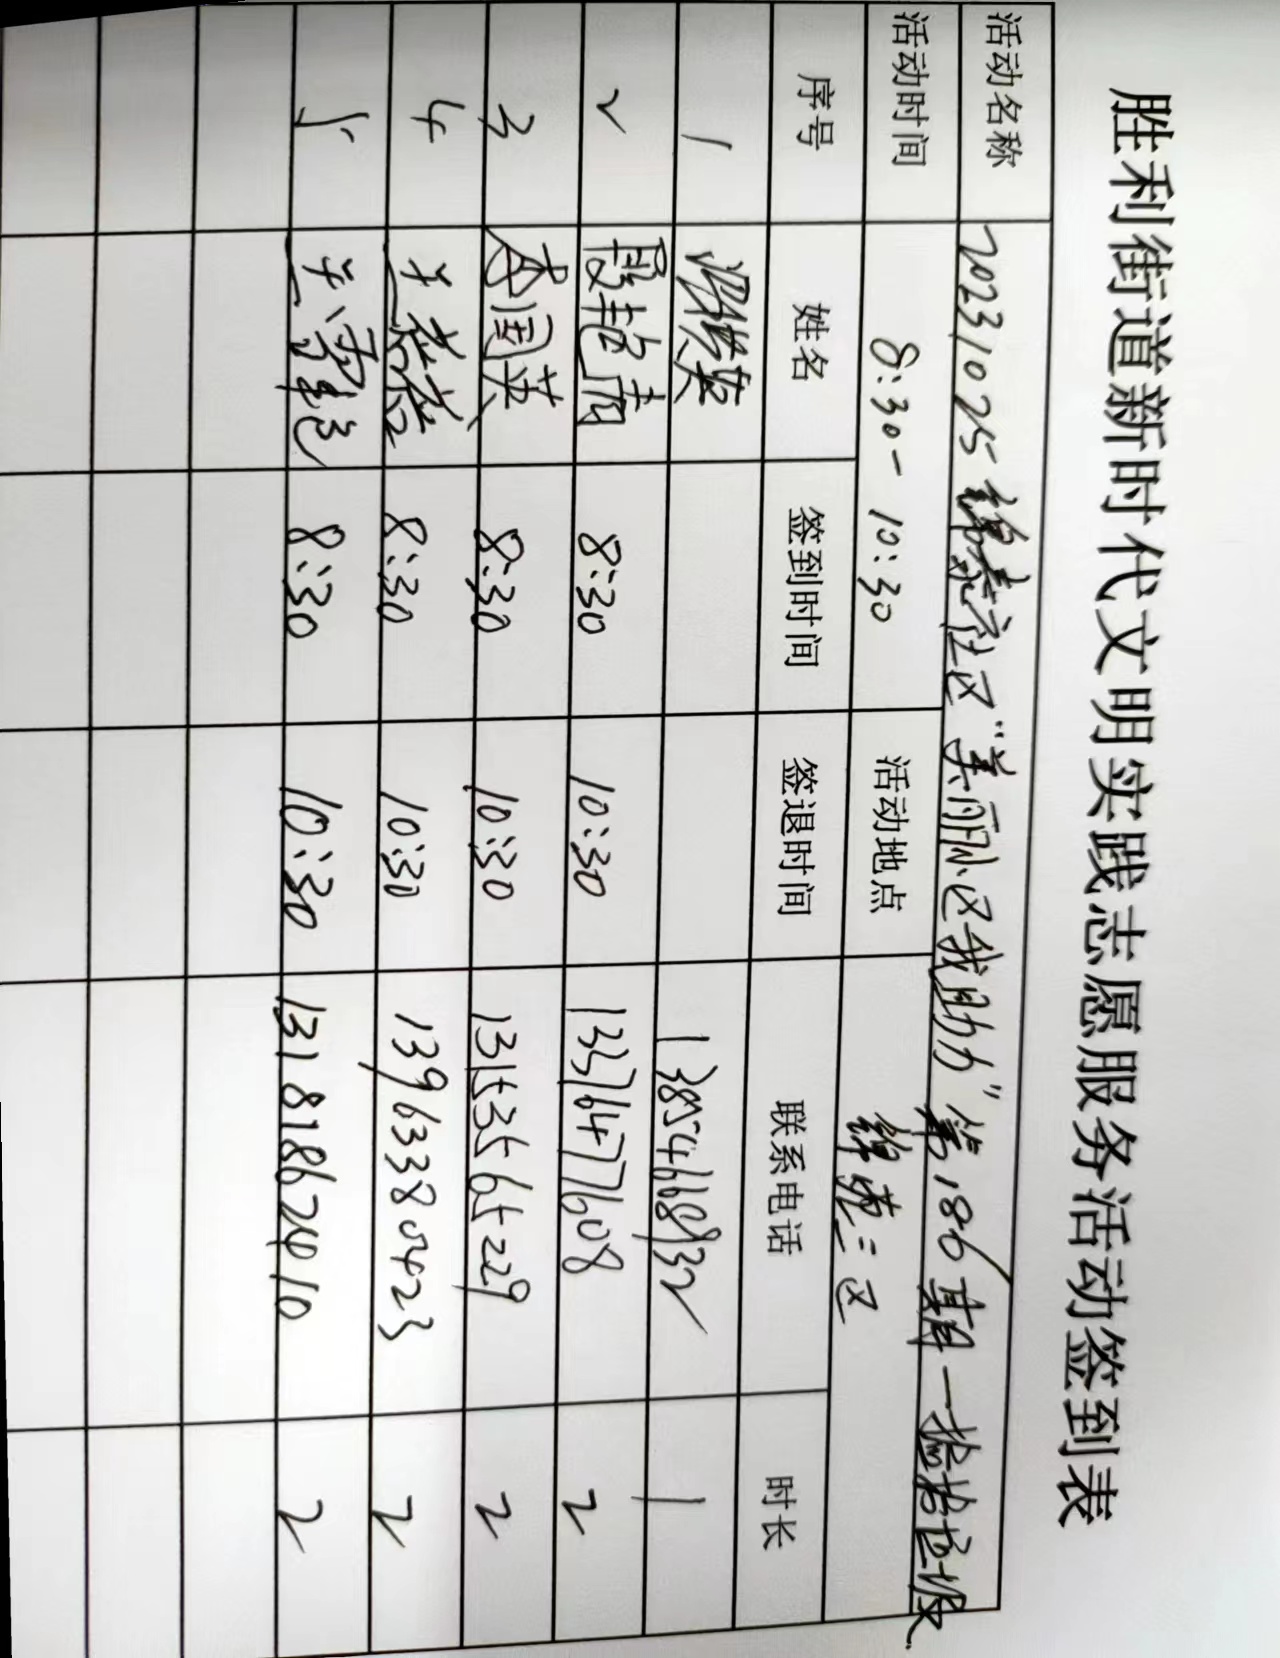 胜利街道新时代文明实践志愿服务活动签到表
活动名称 20231025锦泰社区"美丽小区我助力"第186期—捡拾垃圾
活动时间 8:30-10:30 活动地点 锦苑三区
序号 姓名 签到时间 签退时间 联系电话 时长
1 13854668932 1
2 段艳青 8:30 10:30 13376477608 2
3 李国英 8:30 10:30 13153565229 2
4 王 8:30 10:30 13963380423 2
5 王 8:30 10:30 13181862410 2